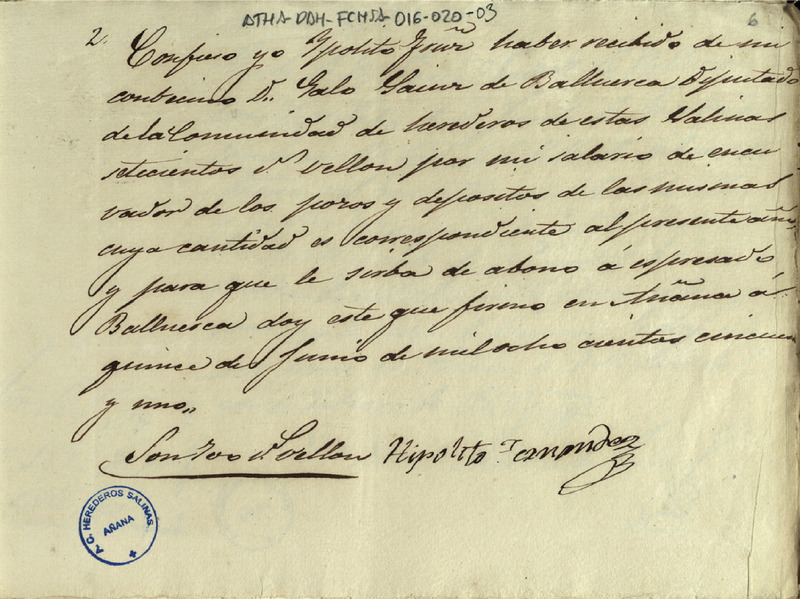 ATHA-DAH-FCMSA-016-020-03
6
2.
Confieso yo Ypolito Frnz haber recibido de mi
conbecino D. Galo Sainz de Balluerca Diputado
de la Comunidad de herederos de estas Salinas
setecientos rs vellon por mi salario de encu
vador de los pozos y depositos de las mismas
cuya cantidad es correspondiente al presente año,
y para que le sirba de abono á espresado
Balluerca doy este que firmo en Añana á
quince de Junio de mil ocho cientos cincuen
y uno,,
Son 700 rs Vellon Hipolito Fernandez
A. C. HEREDEROS SALINAS
AÑANA